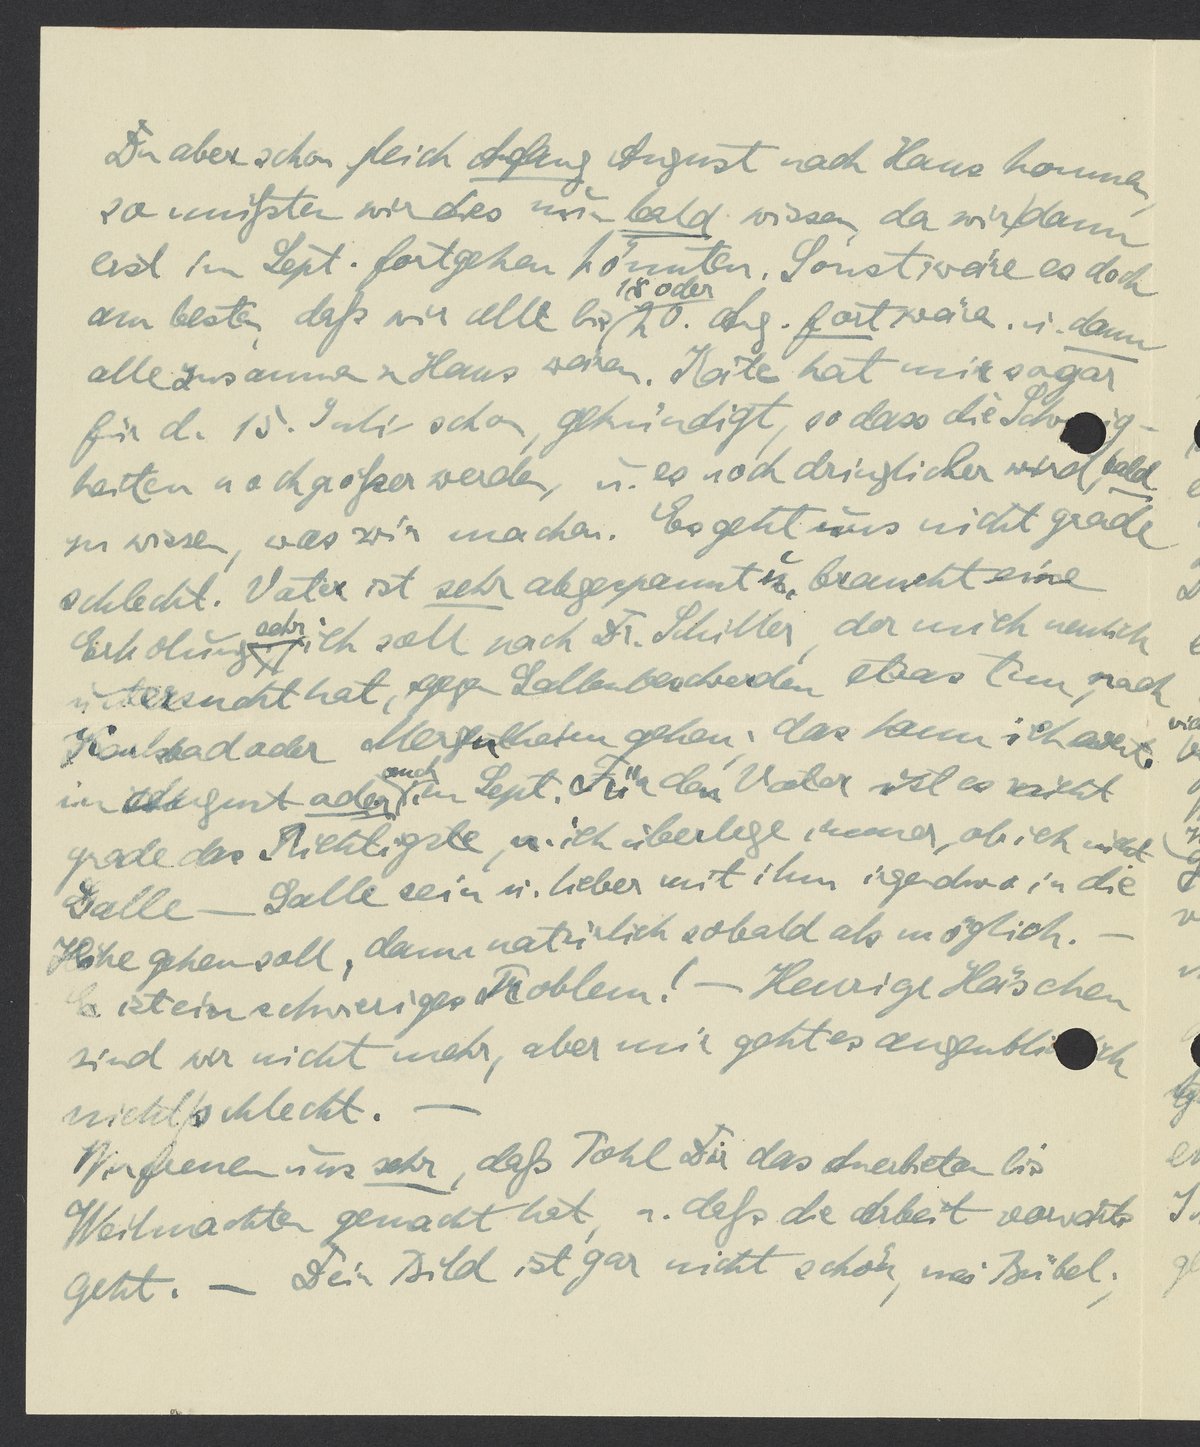 Du aber schon gleich Anfang August nach Haus kommen,
so müßten wir dies nun bald wissen, da wir dann
erst im Sept. fortgehen könnten. Sonst wäre es doch
am besten, daß wir alle bis 18 oder 20. Aug. fort wären u. dann
alle zusammen z Haus wären. Käte hat mir sogar
für d. 15. Juli schon gekündigt, so dass die Schwierig-
keiten noch größer werden, u. es noch dringlicher wird, bald
zu wissen, was wir machen. Es geht uns nicht grade
schlecht. Vater ist sehr abgespannt u. braucht eine
Erholung sehr, ich soll nach Dr. Schiller, der mich neulich
untersucht hat, gegen Gallenbeschwerden etwas tun, nach
Karlsbad oder Mergentheim gehen, das kann ich
im August oder auch im Sept. Für den Vater ist es nicht
grade das Richtigste, u. ich überlege immer, ob ich nicht
Galle — Galle sein u. lieber mit ihm irgendwo in die
Höhe gehen soll, dann natürlich sobald als möglich. —
Es ist ein schwieriges Problem! — Heurige Häschen
sind wir nicht mehr, aber mir geht es augenblicklich
nicht schlecht. —
Wir freuen uns sehr, daß Pohl Dir das Anerbieten bis
Weihnachten gemacht hat, u. daß die Arbeit vorwärts
geht. — Dein Bild ist gar nicht schön, mei Bübel,